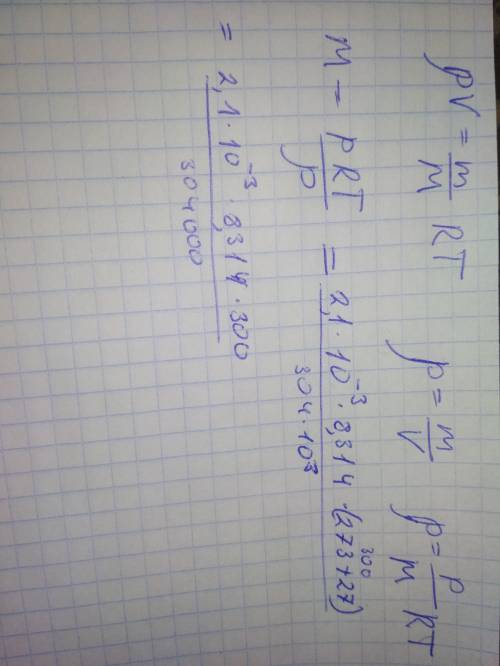 pV = m/M RT   ρ = m/V   p = ρ/M RT
M = ρRT/p = 2,1 · 10⁻³ · 8,314 · (273+27) 300 / 304 · 10³
= 2,1 · 10⁻³ · 8,314 · 300 / 304000